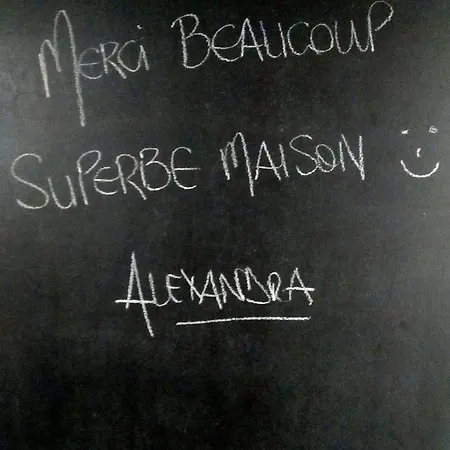 MERCI BEAUCOUP
SUPERBE MAISON :)
ALEXANDRA